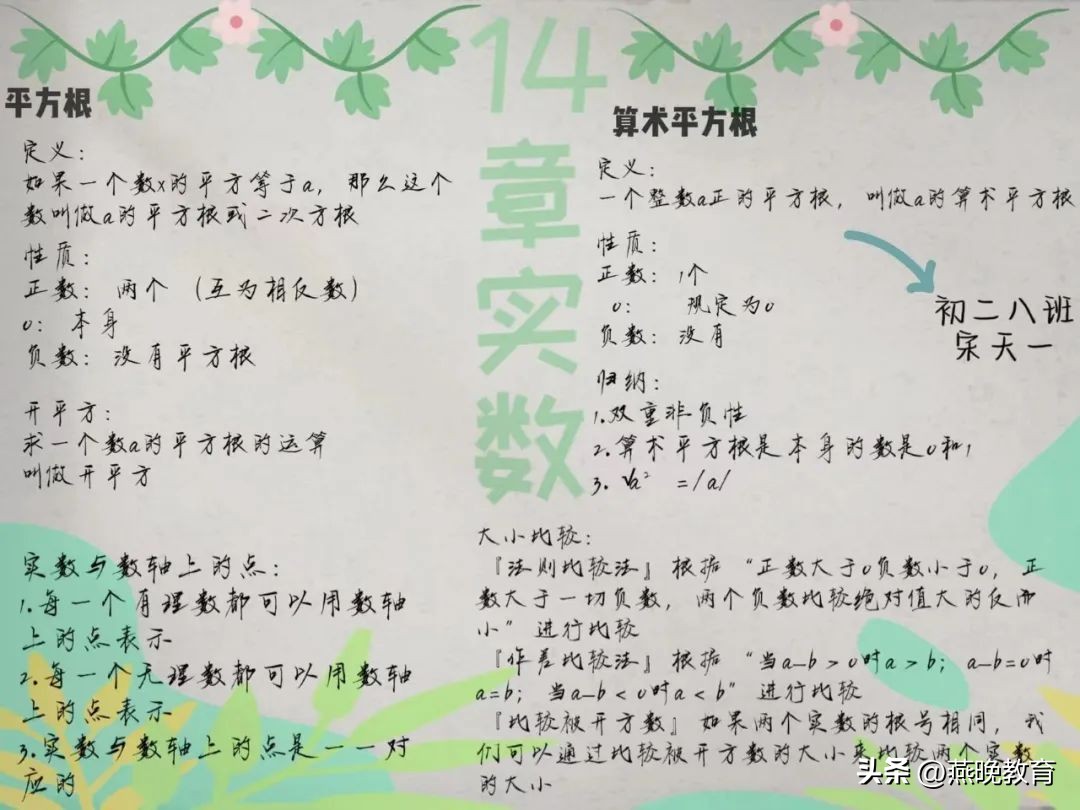 14章实数
平方根
定义：
如果一个数x的平方等于a，那么这个
数叫做a的平方根或二次方根
性质：
正数：两个（互为相反数）
0：本身
负数：没有平方根
开平方：
求一个数a的平方根的运算
叫做开平方
实数与数轴上的点：
1.每一个有理数都可以用数轴
上的点表示
2.每一个无理数都可以用数轴
上的点表示
3.实数与数轴上的点是一一对
应的
算术平方根
定义：
一个整数a正的平方根，叫做a的算术平方根
性质：
正数：1个
0：规定为0
负数：没有
初二八班
宋天一
归纳：
1.双重非负性
2.算术平方根是本身的数是0和1
3.√a² =/a/
大小比较：
『法则比较法』根据“正数大于0负数小于0，正
数大于一切负数，两个负数比较绝对值大的反而
小”进行比较
『作差比较法』根据“当a-b>0时a>b；a-b=0时
a=b；当a-b<0时a<b”进行比较
『比较被开方数』如果两个实数的根号相同，我
们可以通过比较被开方数的大小来比较两个实数
的大小
头条 @燕晚教育